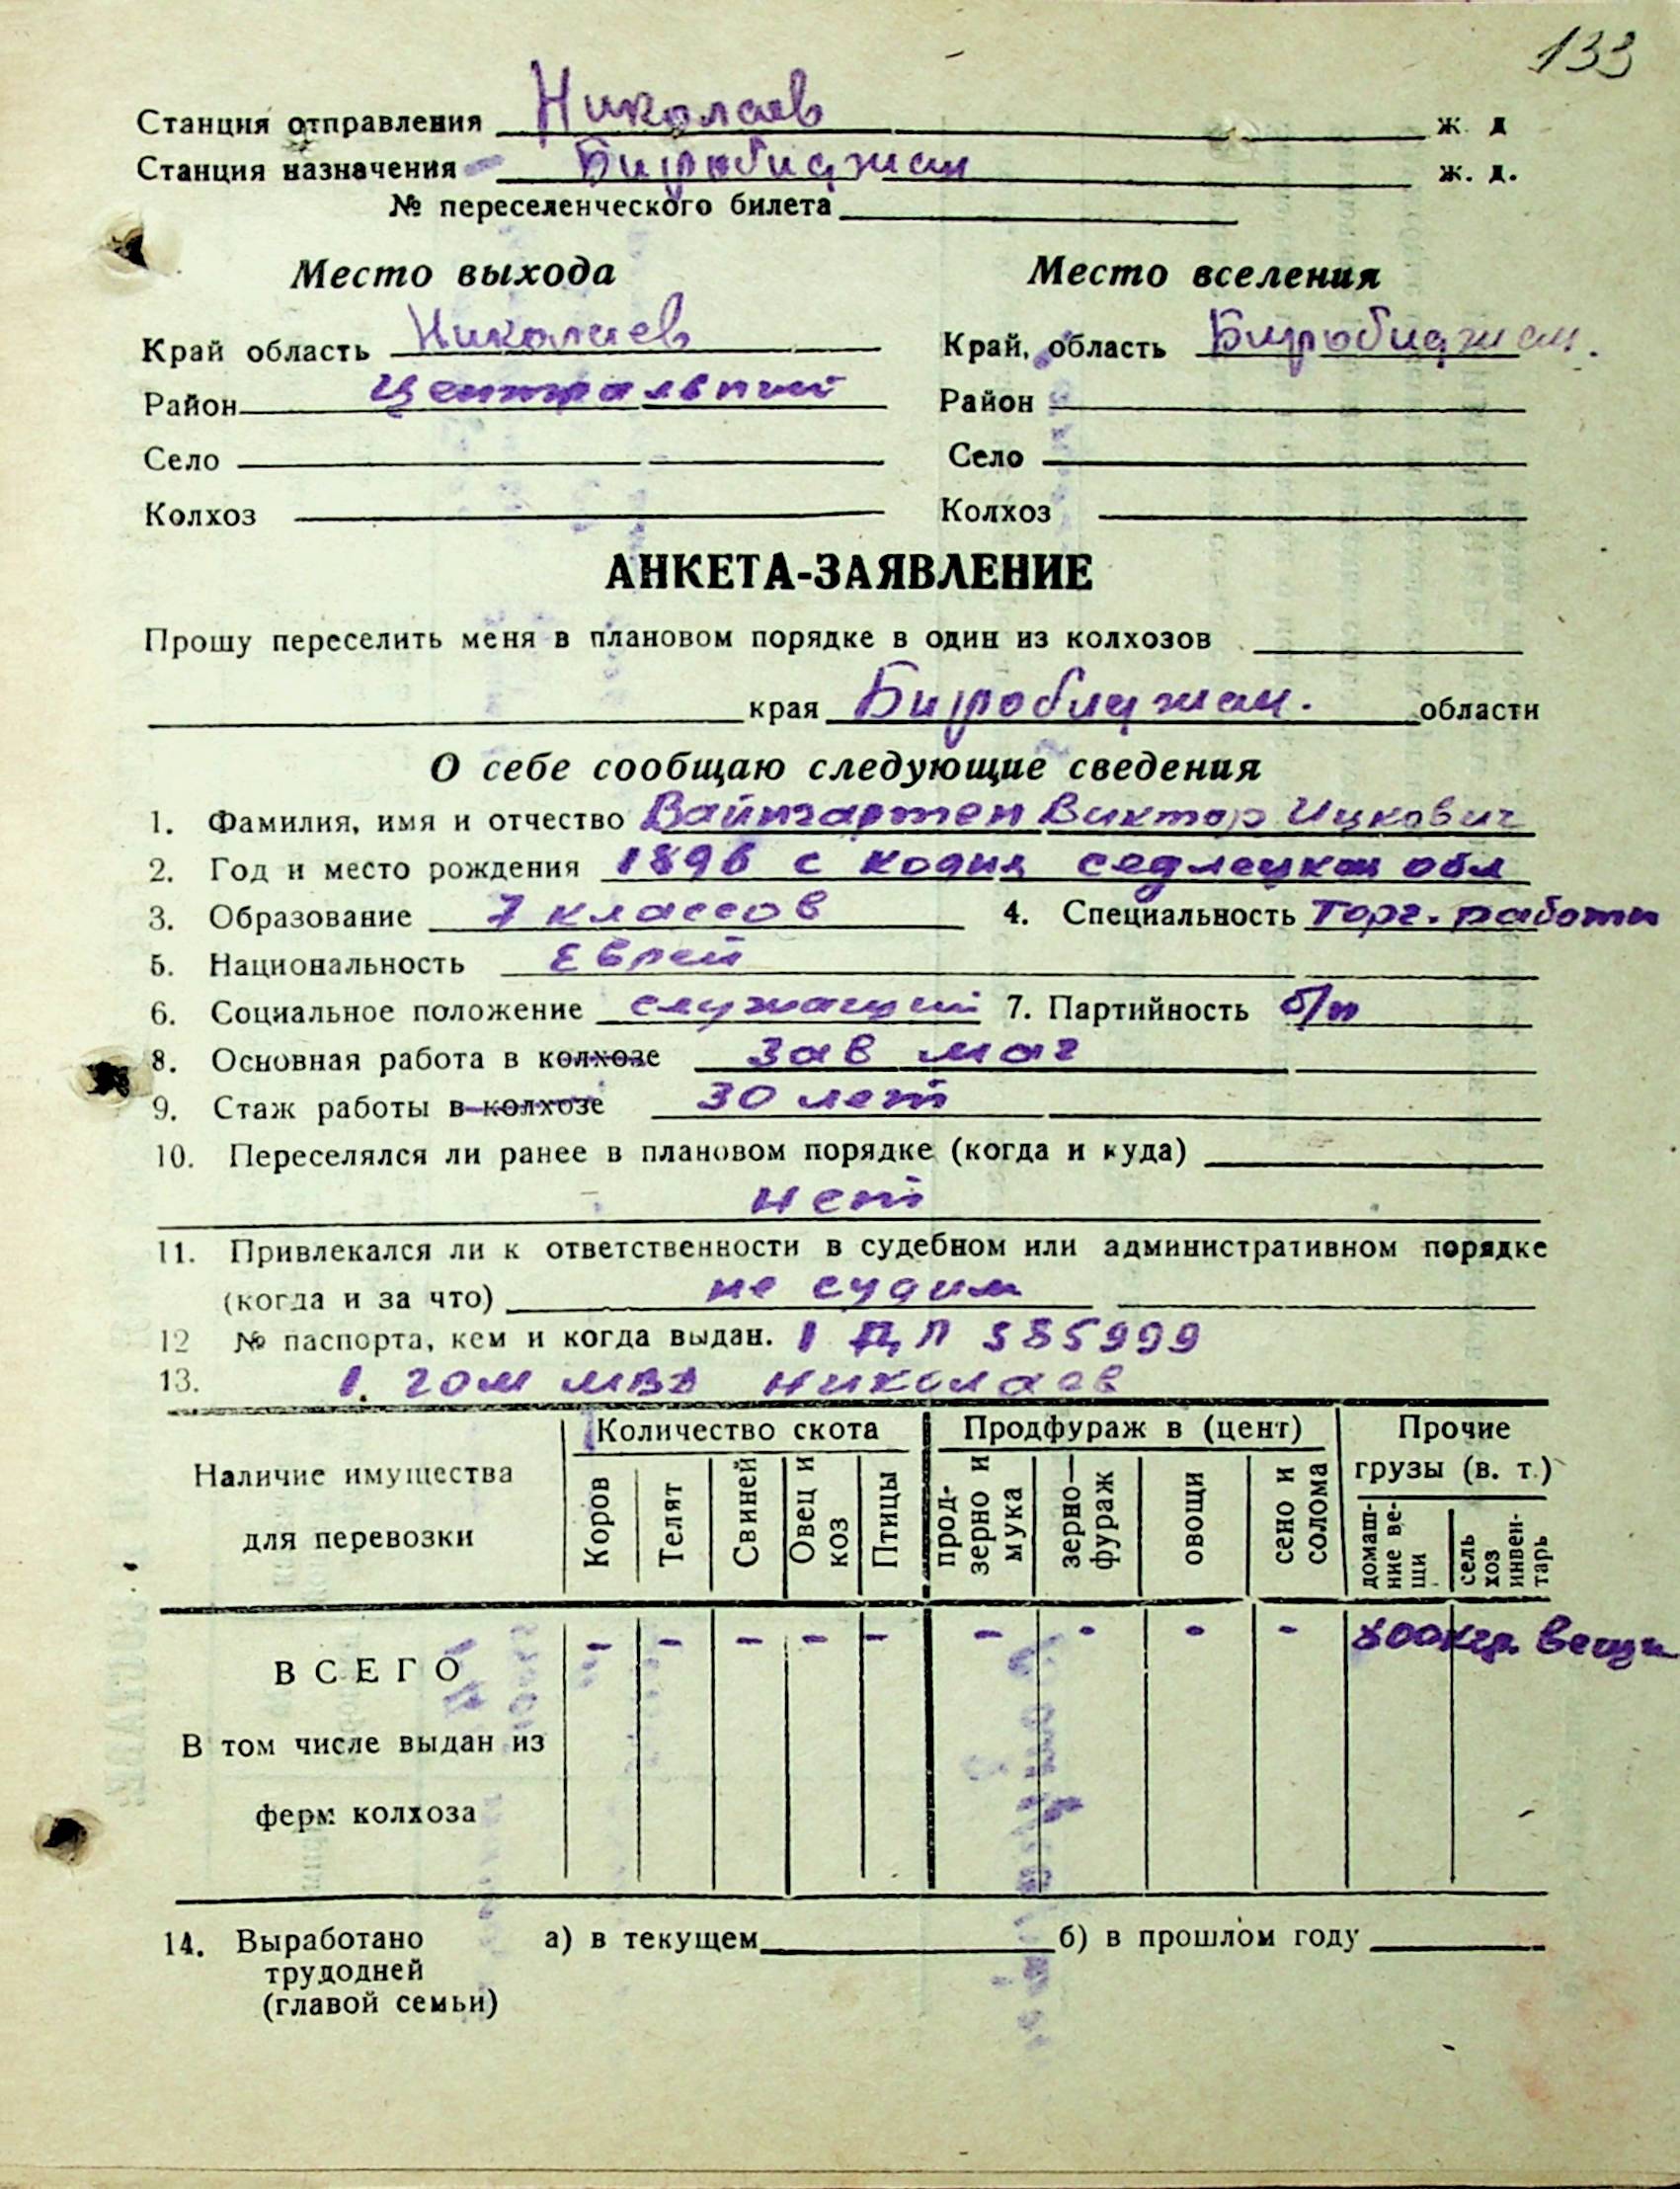 133
Станция отправления Николаев ж. д
Станция назначения Биробиджан ж. д.
№ переселенческого билета
Место выхода Место вселения
Край область Николаев Край, область Биробиджан.
Район Центральный Район
Село Село
Колхоз Колхоз
АНКЕТА-ЗАЯВЛЕНИЕ
Прошу переселить меня в плановом порядке в один из колхозов
края Биробиджан. области
О себе сообщаю следующие сведения
1. Фамилия, имя и отчество Вайнгартен Виктор Ицкович
2. Год и место рождения 1896 с Кодня седлецкой обл
3. Образование 7 классов 4. Специальность Торг. работн
5. Национальность Еврей
6. Социальное положение служащий 7. Партийность б/п
8. Основная работа в колхозе зав маг
9. Стаж работы в колхозе 30 лет
10. Переселялся ли ранее в плановом порядке (когда и куда)
нет
11. Привлекался ли к ответственности в судебном или административном порядке
(когда и за что) не судим
12 № паспорта, кем и когда выдан. I ДЛ 585999
13. 1. гом МВД Николаев
Наличие имущества для перевозки Количество скота Продфураж в (цент) Прочие грузы (в. т.)
Коров Телят Свиней Овец и коз Птицы прод-зерно и мука зерно—фураж овощи сено и солома домаш-ние ве-щи сель хоз инвен-тарь
ВСЕГО - - - - - - - - - 800кгр. вещи
В том числе выдан из
ферм колхоза
14. Выработано а) в текущем б) в прошлом году
трудодней
(главой семьи)